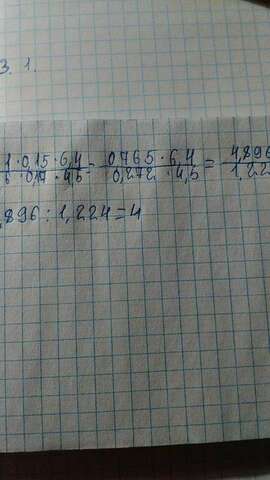 3. 1.
1 · 0,15 · 6,4 / 6 · 0,17 · 4,5 = 0,765 · 6,4 / 0,272 · 4,5 = 4,896 / 1,22
,896 : 1,224 = 4